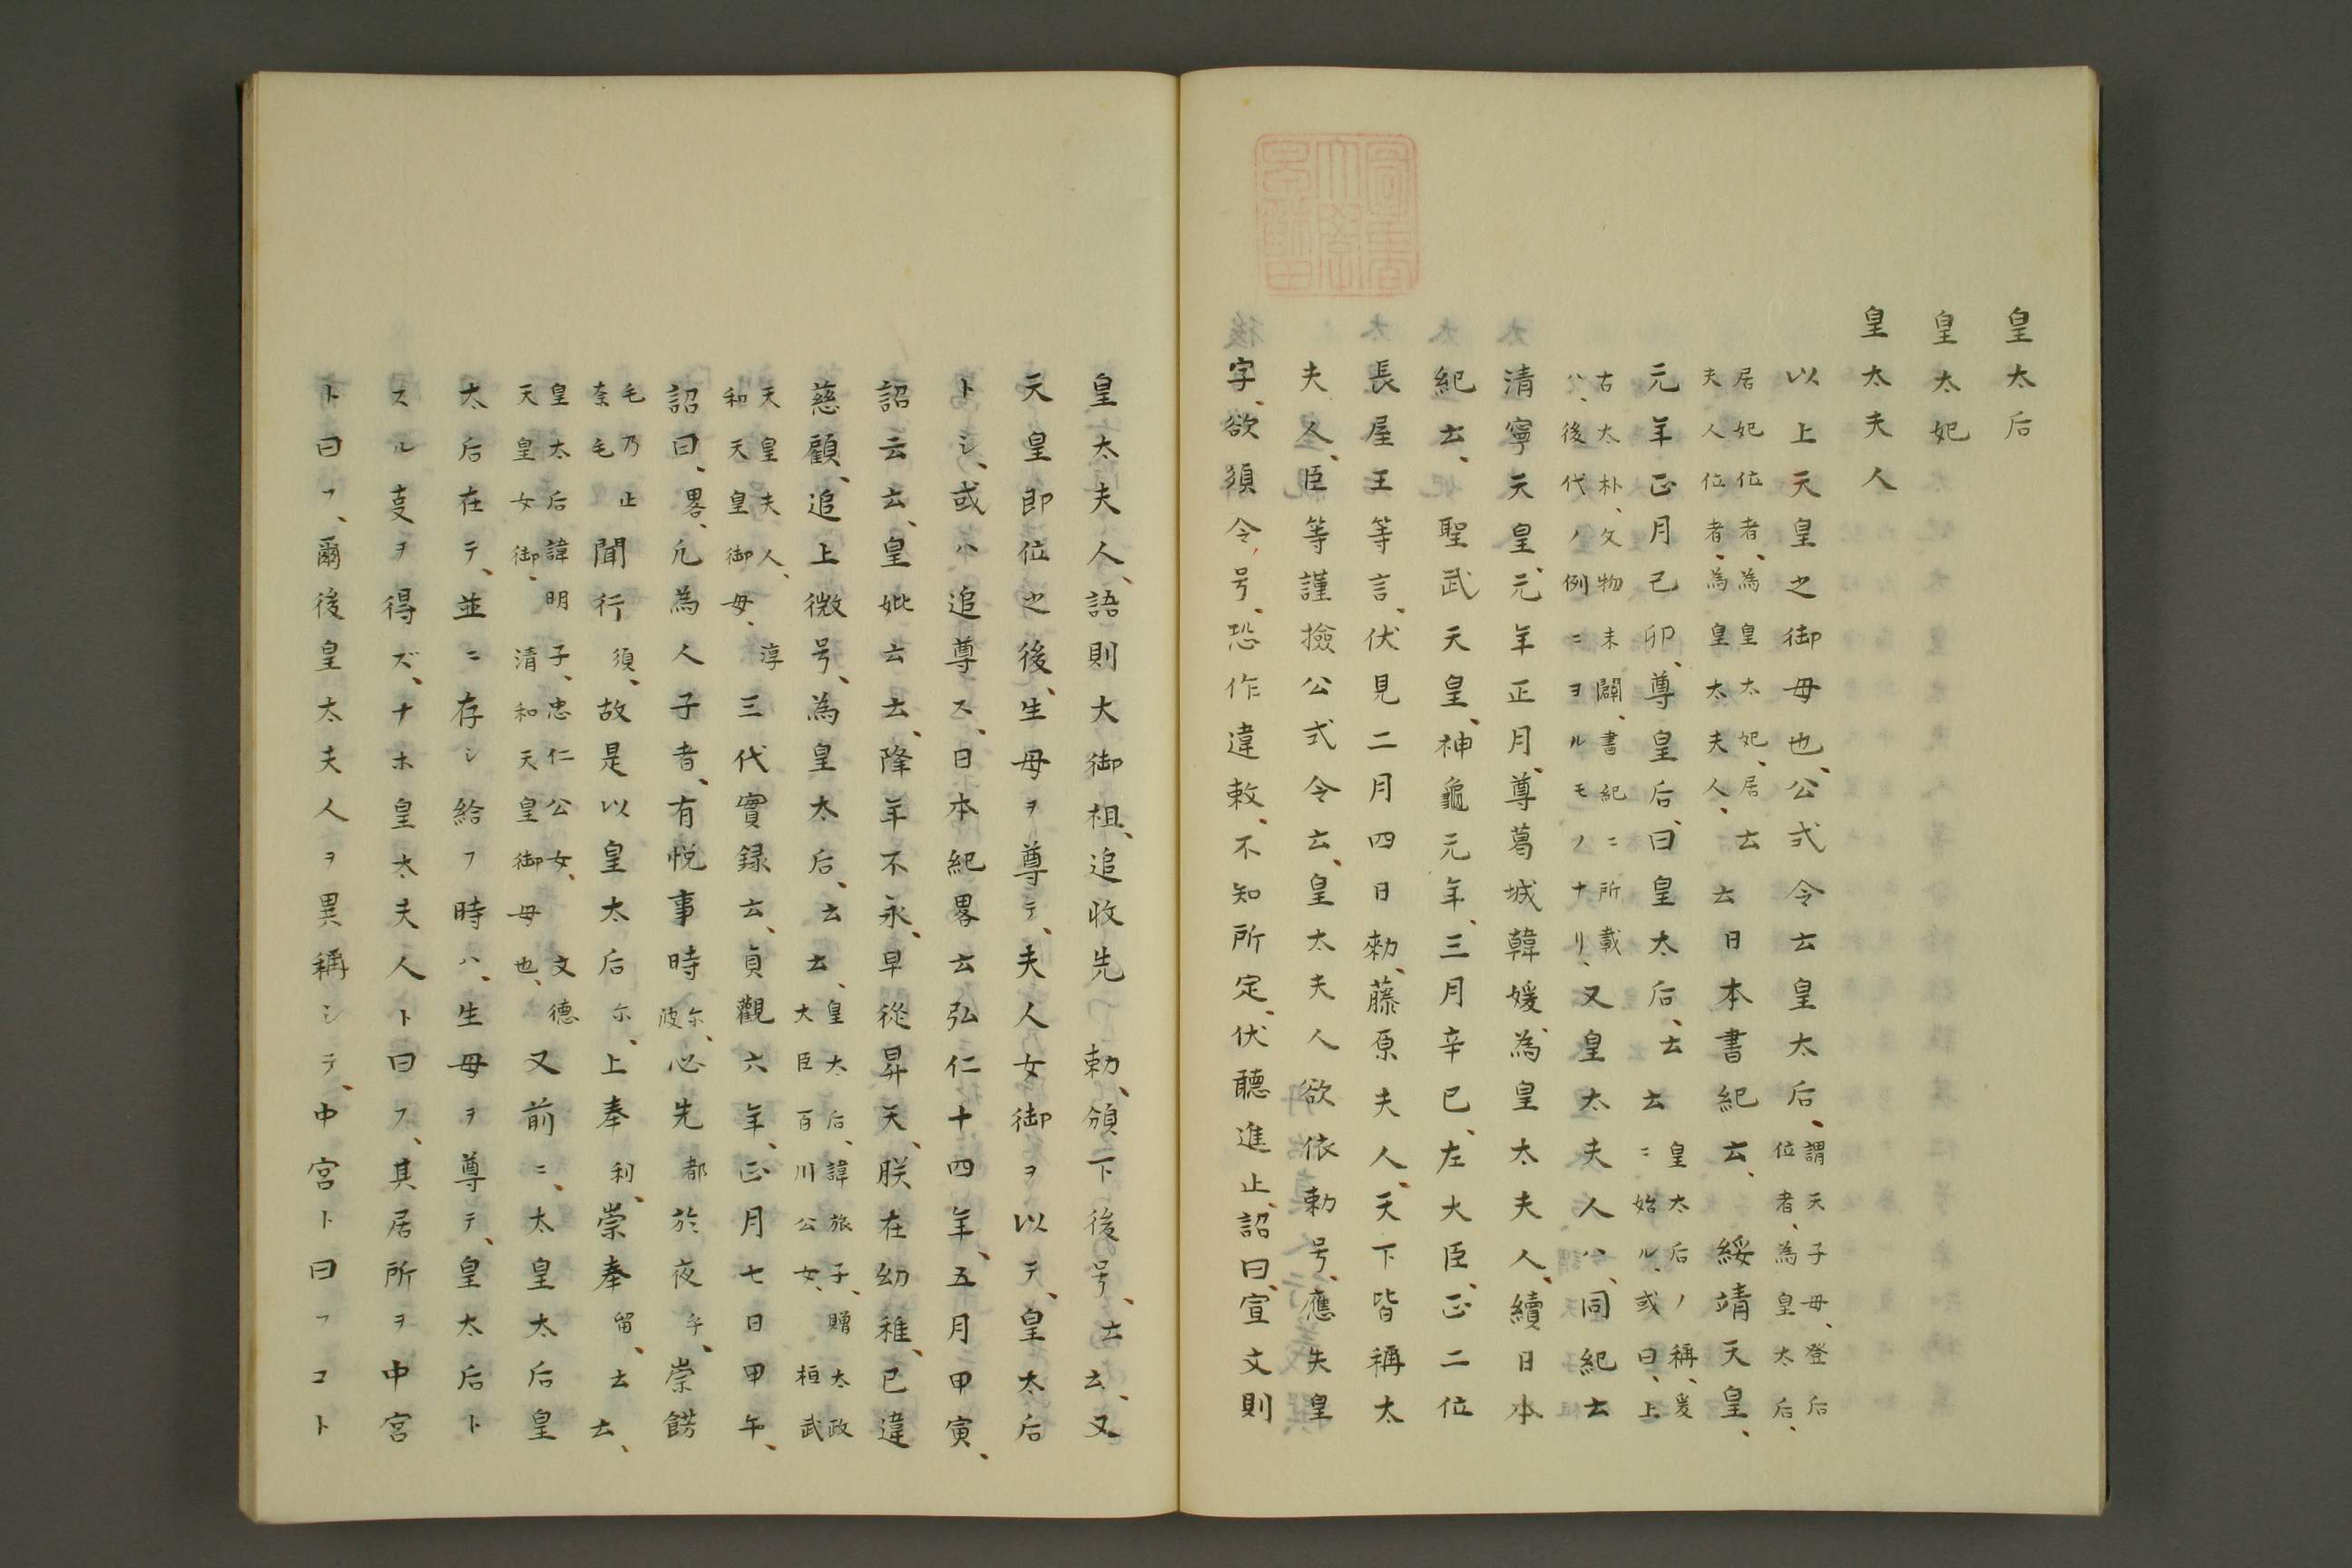 皇太后
皇太妃
皇太夫人
以上天皇之御母也、公式令云皇太后、謂天子母、登后位者、為皇太后、
居妃位者、為皇太妃、居夫人位者、為皇太夫人、云云日本書紀云、綏靖天皇、
元年正月己卯、尊皇后、曰皇太后、云云皇太后ノ稱、爰ニ始ル、或曰、上
古太朴、文物未闢、書紀ニ所載ハ、後代ノ例ニヨルモノナリ、又皇太夫人ハ、同紀云
清寧天皇、元年正月、尊葛城韓媛、為皇太夫人、續日本
紀云、聖武天皇、神龜元年、三月辛巳、左大臣、正二位
長屋王等言、伏見二月四日勅、藤原夫人、天下皆稱太
夫人、臣等謹撿公式令云、皇太夫人欲依勅号、應失皇
字、欲須令号、恐作違敕、不知所定、伏聽進止、詔曰、宣文則
皇太夫人、語則大御祖、追收先勅、頒下後号、云云、又
天皇即位之後、生母ヲ尊テ、夫人女御ヲ以テ、皇太后
トシ、或ハ追尊ス、日本紀畧云弘仁十四年、五月甲寅、
詔云云、皇妣云云、降年不永、早從昇天、朕在幼稚、已違
慈顧、追上微号、為皇太后、云云、皇太后、諱旅子、贈太政大臣百川公女、桓武
天皇夫人、淳和天皇御母、三代實録云、貞觀六年、正月七日甲午、
詔曰、畧、凡為人子者、有悦事時尓波、心先都於夜乎、崇餝
毛乃止奈毛聞行須、故是以皇太后尓、上奉利、崇奉留、云云、
皇太后諱明子、忠仁公女、文德天皇女御、清和天皇御母也、又前ニ、太皇太后皇
太后在テ、並ニ存シ給フ時ハ、生母ヲ尊テ、皇太后ト
スル亊ヲ得ズ、ナホ皇太夫人ト曰フ、其居所ヲ中宮
ト曰フ、爾後皇太夫人ヲ異稱シテ、中宮ト曰フコト